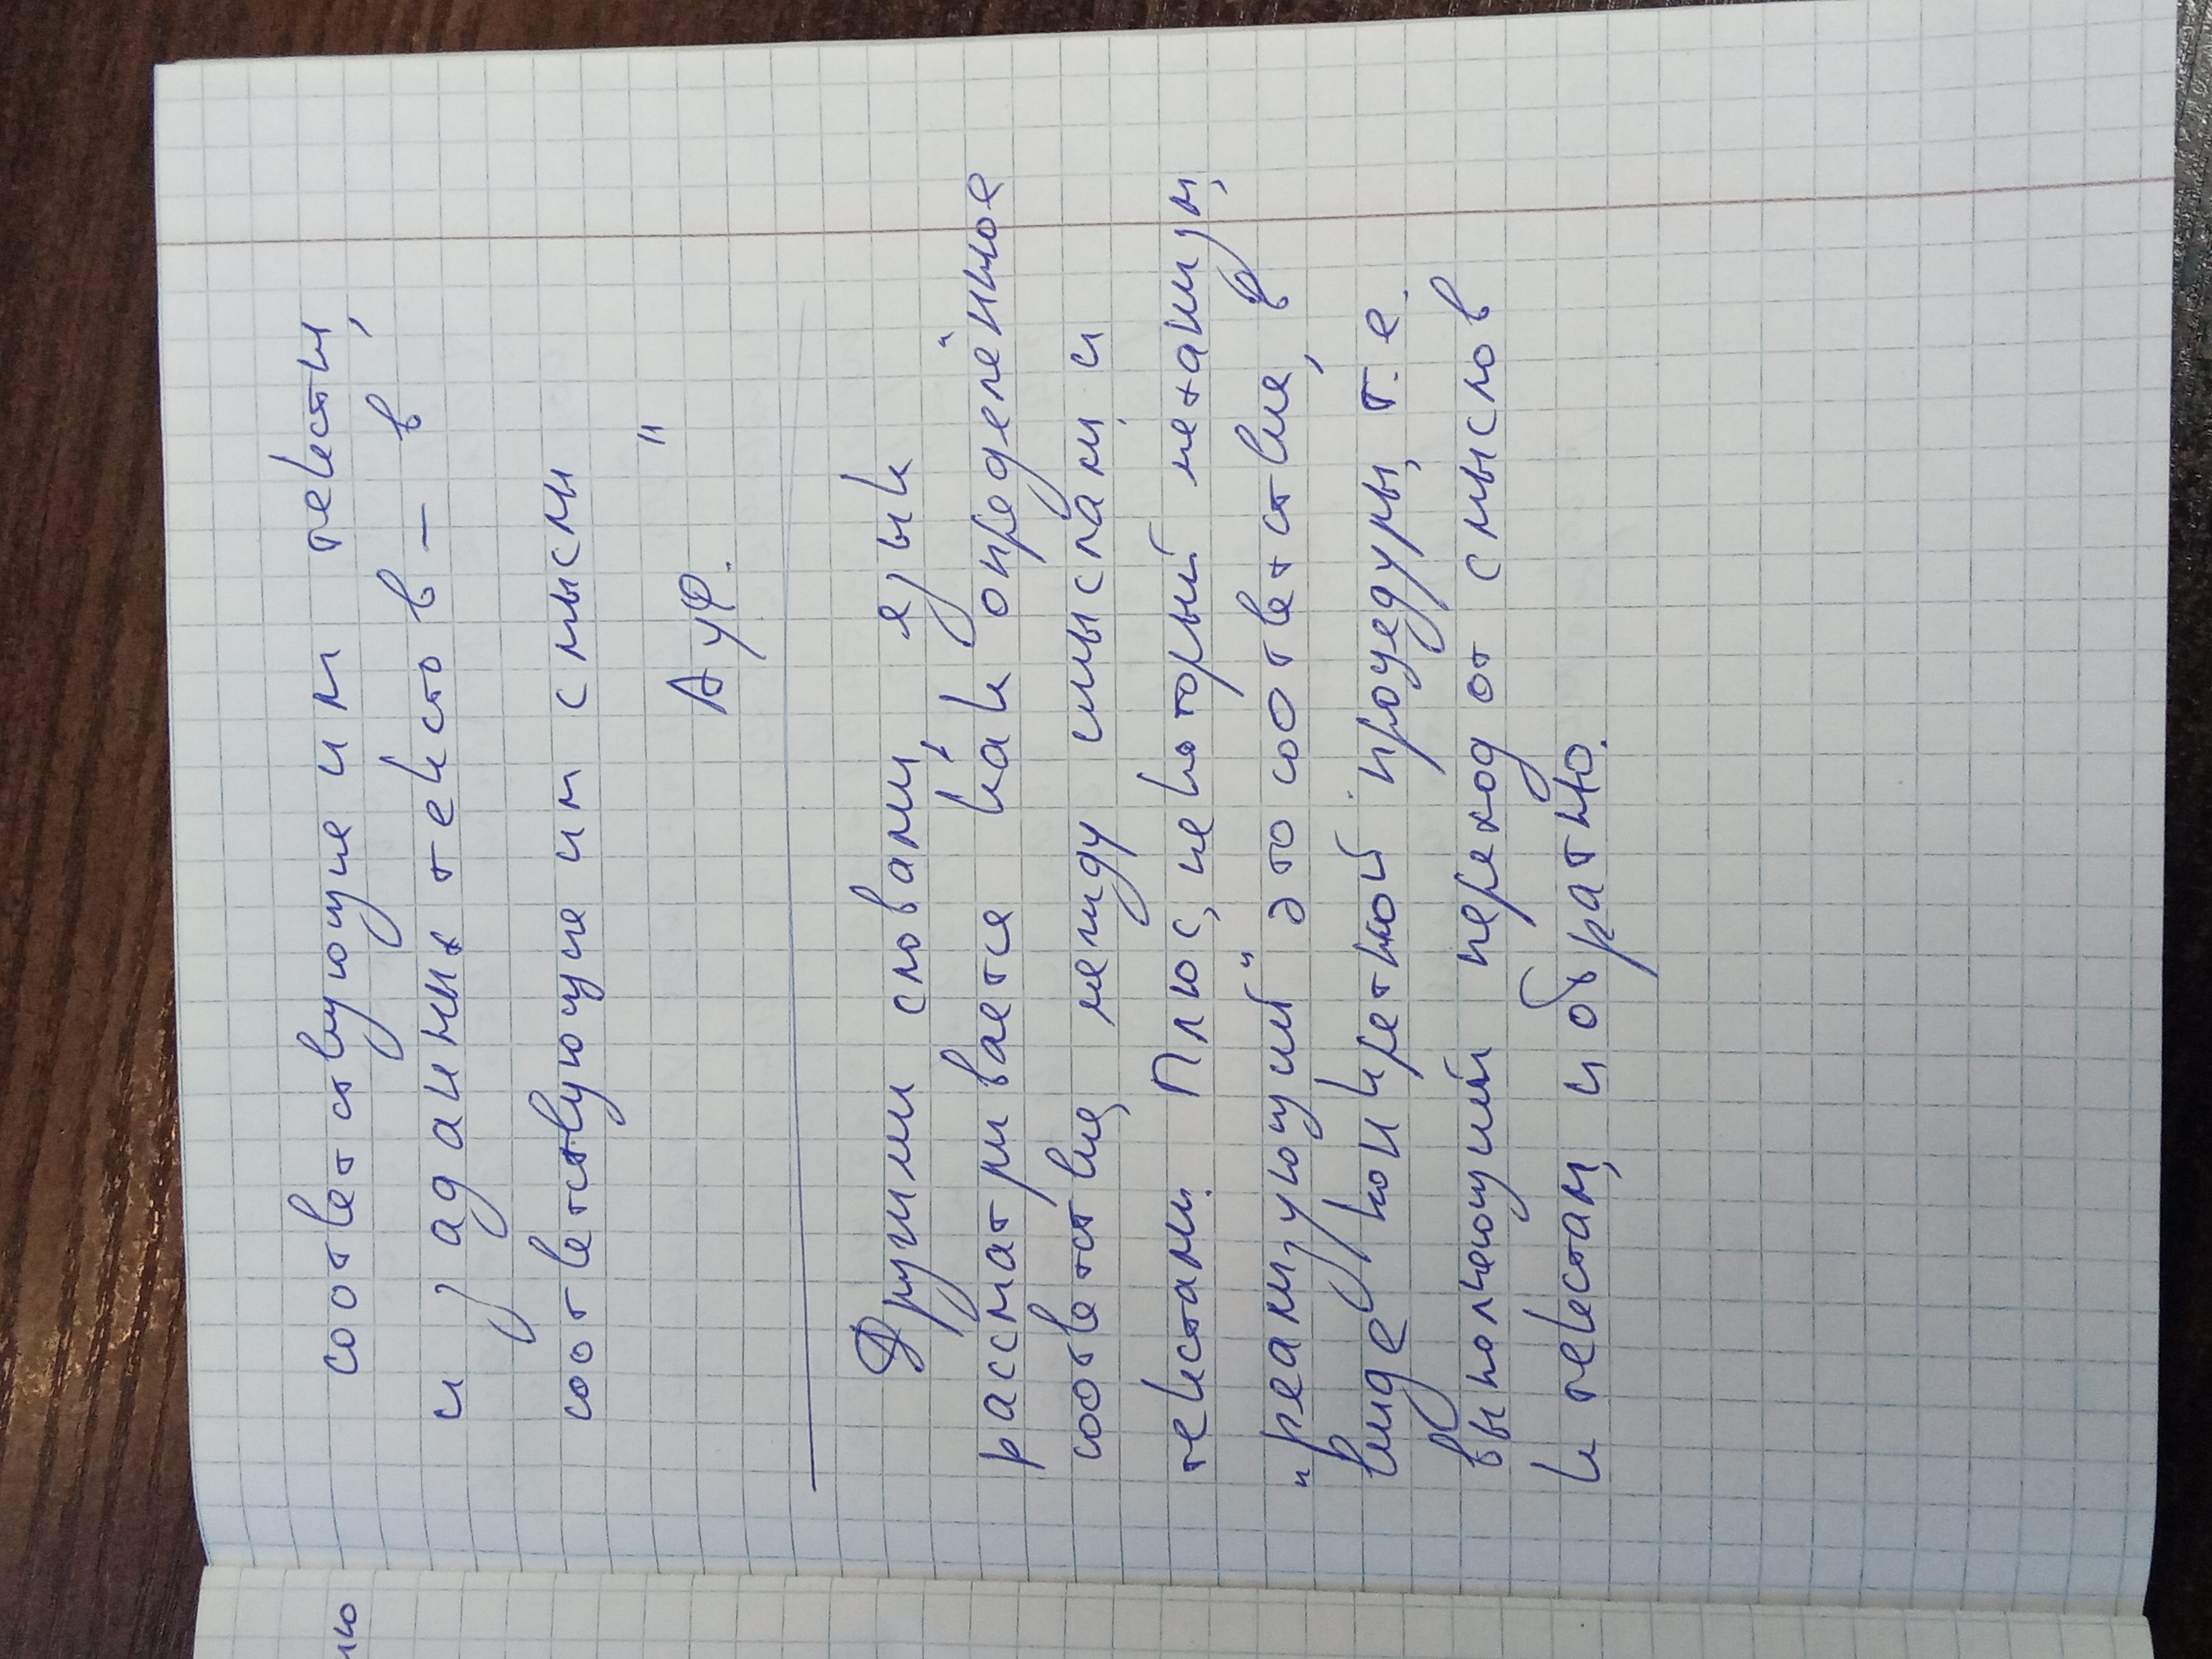 соответствующие им тексты,
и заданных текстов – в
соответствующие им смыслы
"
А у Ф.
Другими словами, язык
рассматривается как определённое
соответствие, между смыслами и
текстами. Плюс, некоторый механизм,
„реализующий“ это соответствие, в
виде конкретной процедуры, т.е.
выполняющий переход от смыслов
к текстам, и обратно.